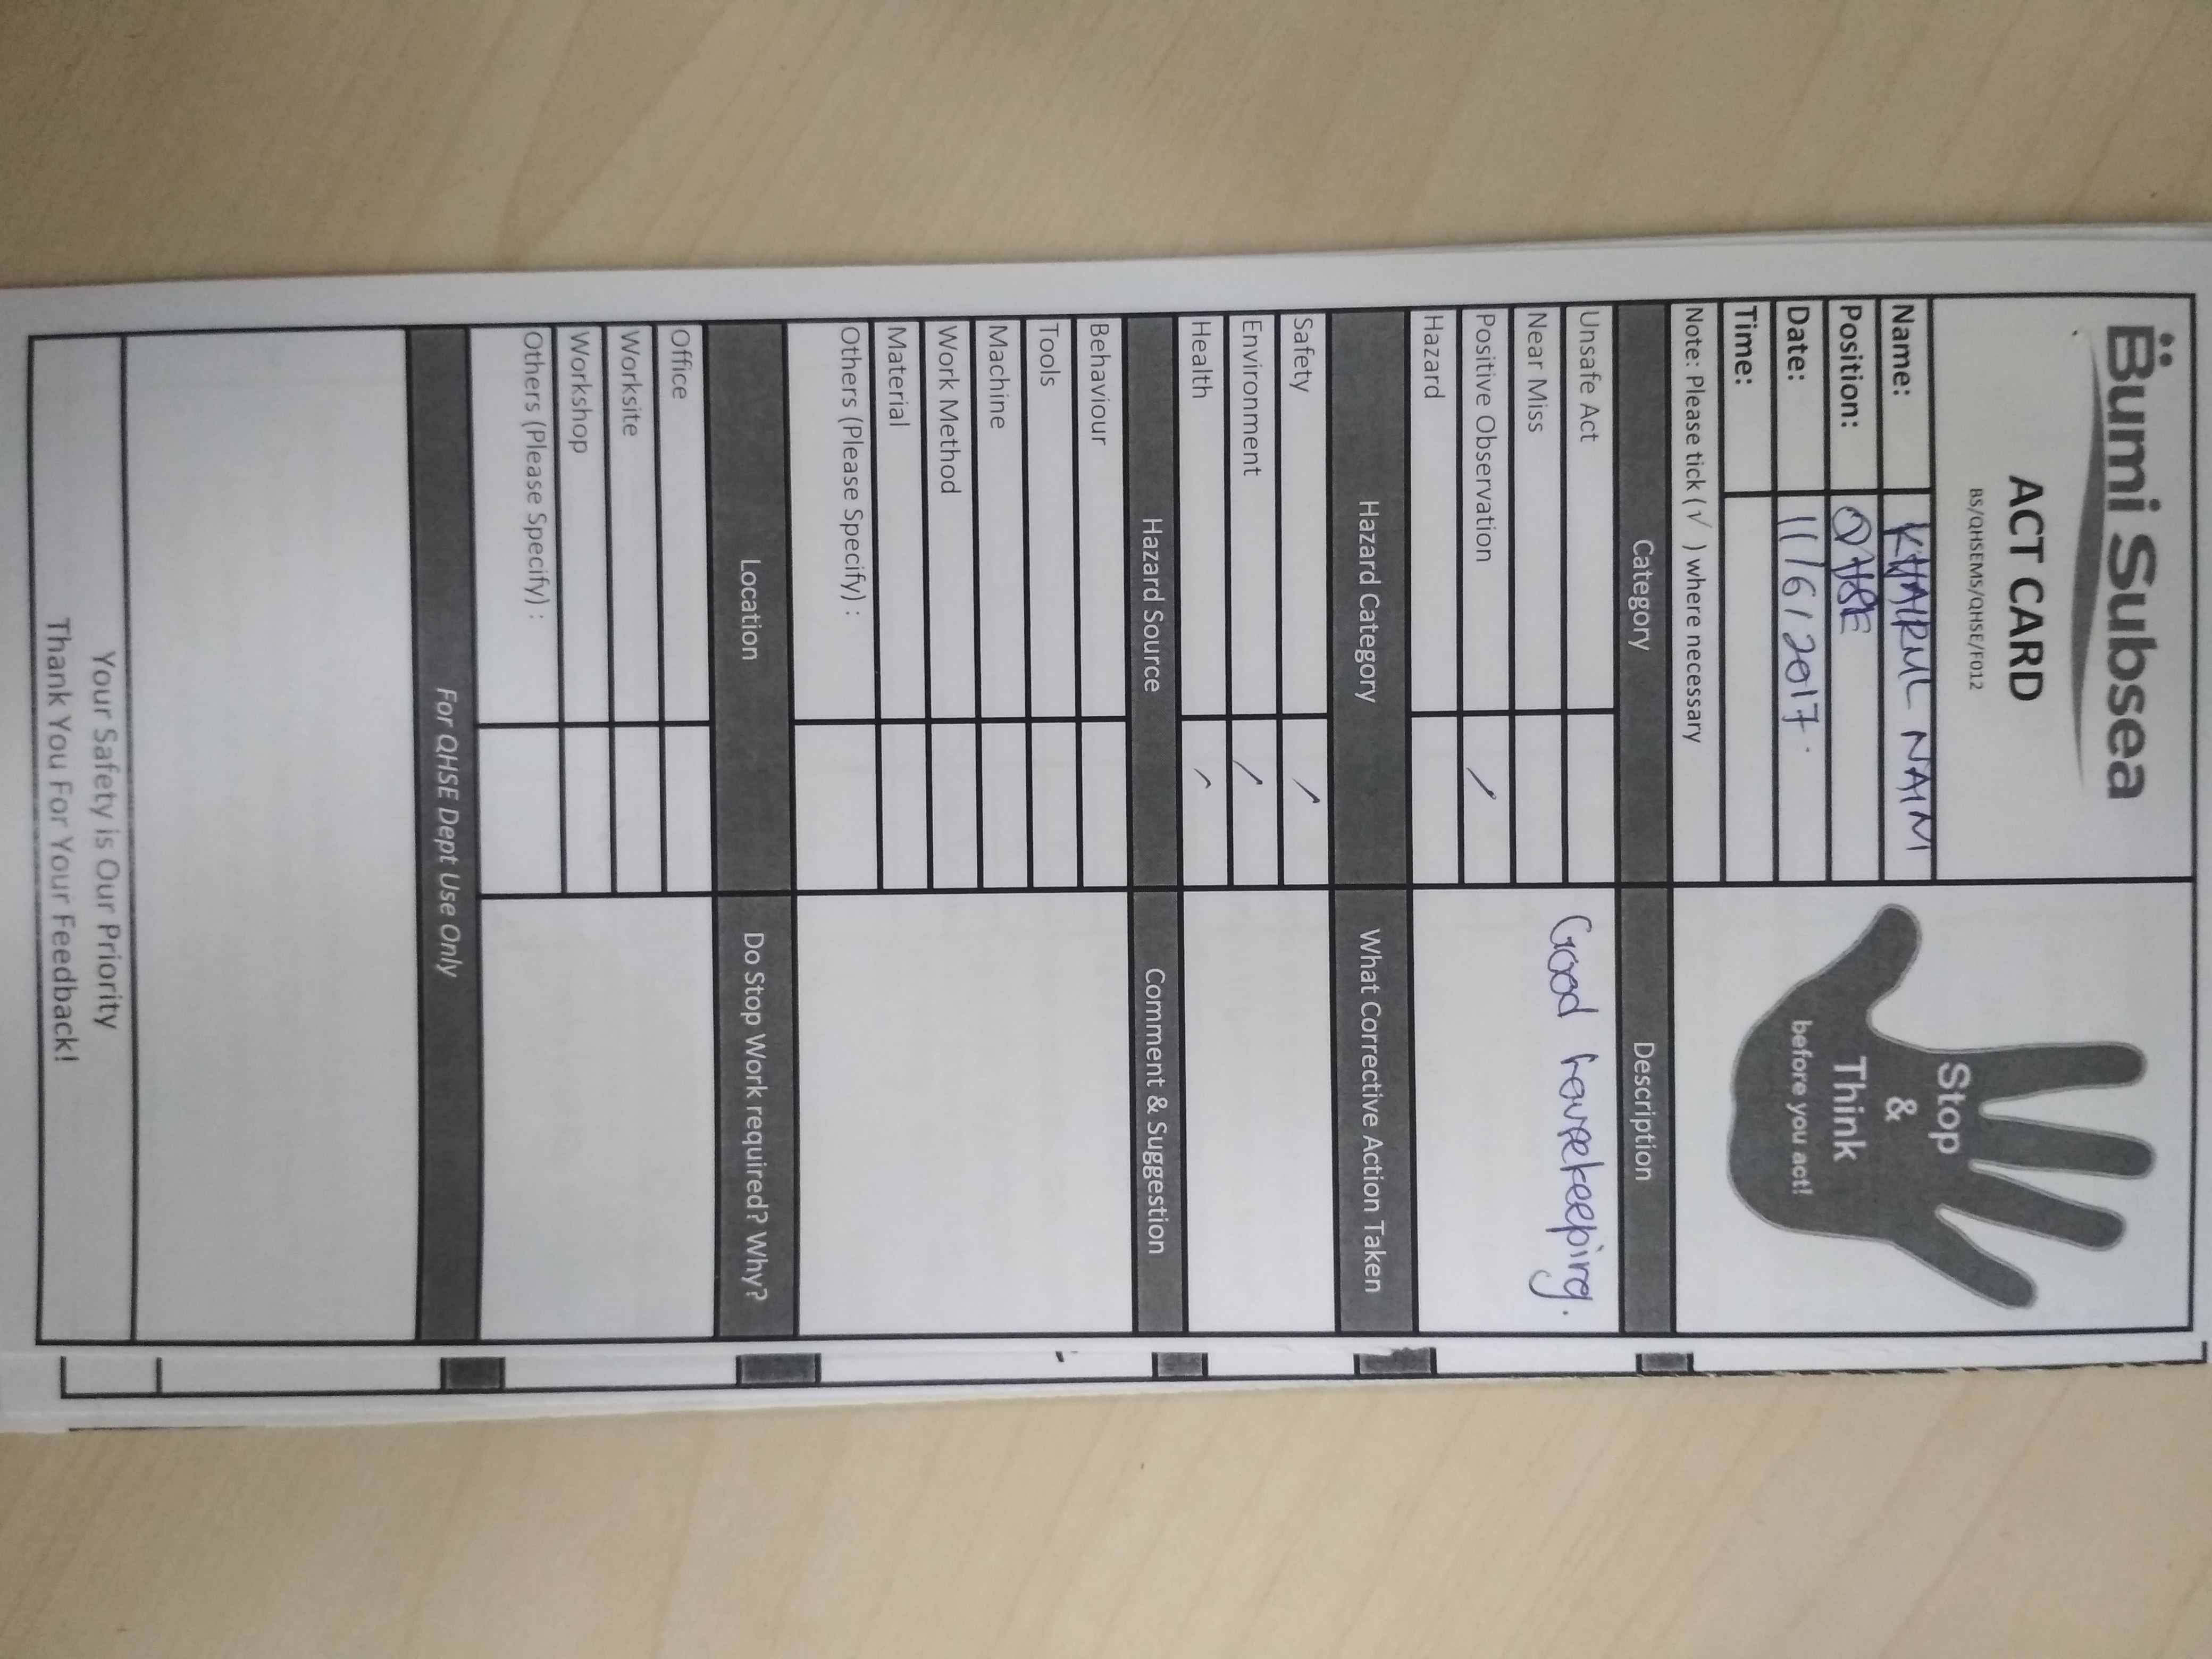 Bumi Subsea
ACT CARD
BS/QHSEMS/QHSE/F012
Stop
&
Think
before you act!
Name: KHAIRUL NAIM
Position: QHSE
Date: 11/6/2017.
Time:
Note: Please tick (√ ) where necessary
Category Description
Unsafe Act
Near Miss
Positive Observation /
Hazard
Good housekeeping.
Hazard Category What Corrective Action Taken
Safety /
Environment /
Health /
Hazard Source Comment & Suggestion
Behaviour
Tools
Machine
Work Method
Material
Others (Please Specify) :
Location Do Stop Work required? Why?
Office
Worksite
Workshop
Others (Please Specify) :
For QHSE Dept Use Only
Your Safety is Our Priority
Thank You For Your Feedback!